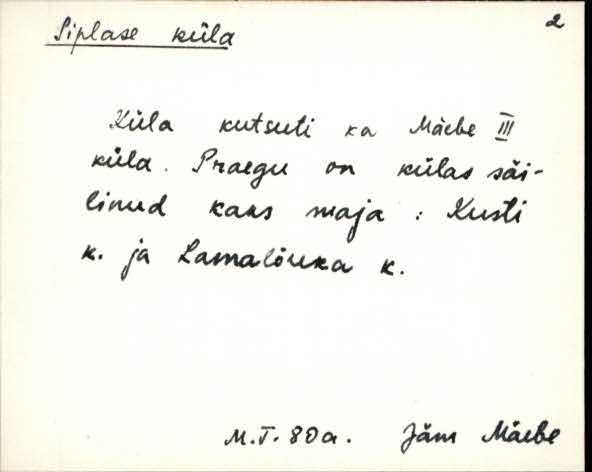 Siplase küla 2
Küla kutsuti ka Mäebe III
küla. Praegu on külas säi-
linud kaks maja: Kusti
k. ja Lamalõuka k.
M.T. 80a. Jäm Mäebe